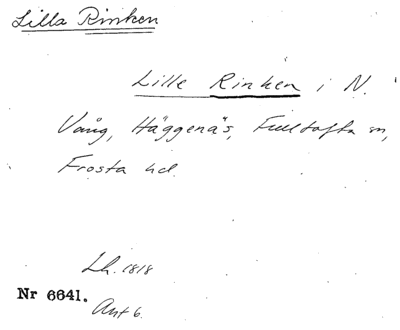 Lilla Rinken
Lille Rinken i N.
Vång, Häggenäs, Fulltofta sn,
Frosta hd.
Lh. 1818
Nr 6641.
Ant 6.